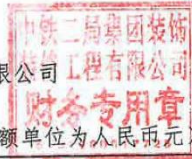 中铁二局集团装饰
装修工程有限公司
限公司
财务专用章
额单位为人民币元